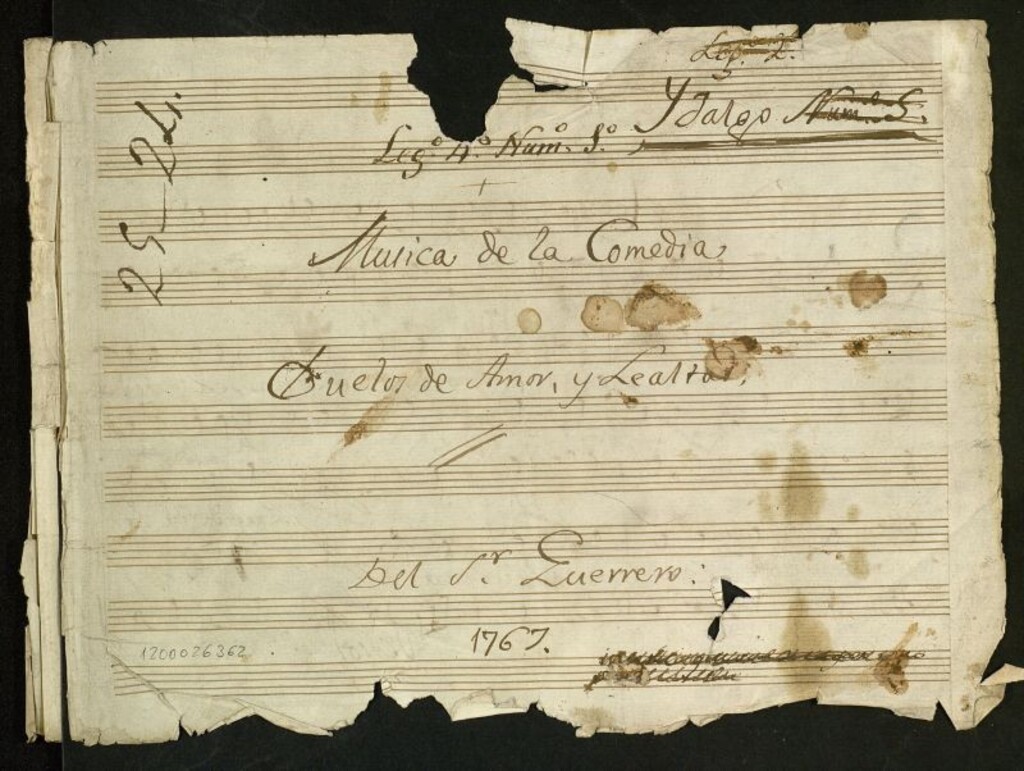 Leg.º 2.
Ydalgo Num.º 5.
Leg.º 4.º Num.º 5.º
Musica de la Comedia
Duelos de Amor, y Lealtad,
Del S.r Guerrero:
1767.
1200026362